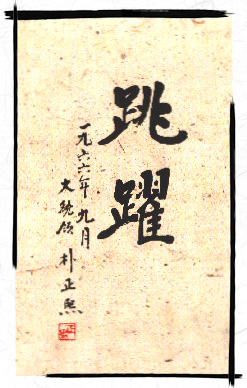 跳躍
一九六六年 九月
大統領 朴正熙